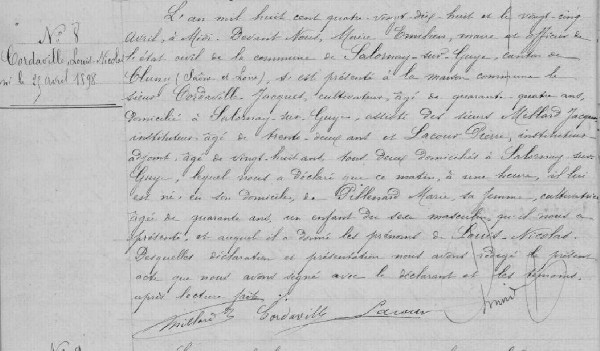 N° 8
Cordaville Louis-Nicolas
né le 25 avril 1898
L'an mil huit cent quatre-vingt-dix-huit et le vingt-cinq
avril, à Midi. Devant Nous, maire et officier de
l'état civil de la commune de Salornay-sur-Guye, canton de
Cluny (Saône et Loire), s'est présenté à la maison commune le
sieur Cordaville Jacques, cultivateur, âgé de quarante-quatre ans,
domicilié à Salornay-sur-Guye, assisté des sieurs Millard
instituteur, âgé de trente-deux ans et Lacour Pierre, instituteur-
adjoint, âgé de vingt-huit ans, tous deux domiciliés à Salornay-sur-
Guye, lequel nous a déclaré que ce matin, à une heure, il lui
est né, en son domicile, de Marie, sa femme, cultivatrice
âgée de quarante ans, un enfant du sexe masculin qu'il nous a
présenté, et auquel il a donné les prénoms de Louis-Nicolas.
Desquelles déclaration et présentation nous avons rédigé le présent
acte que nous avons signé avec le déclarant et les témoins,
après lecture faite.
Millard Cordaville Lacour